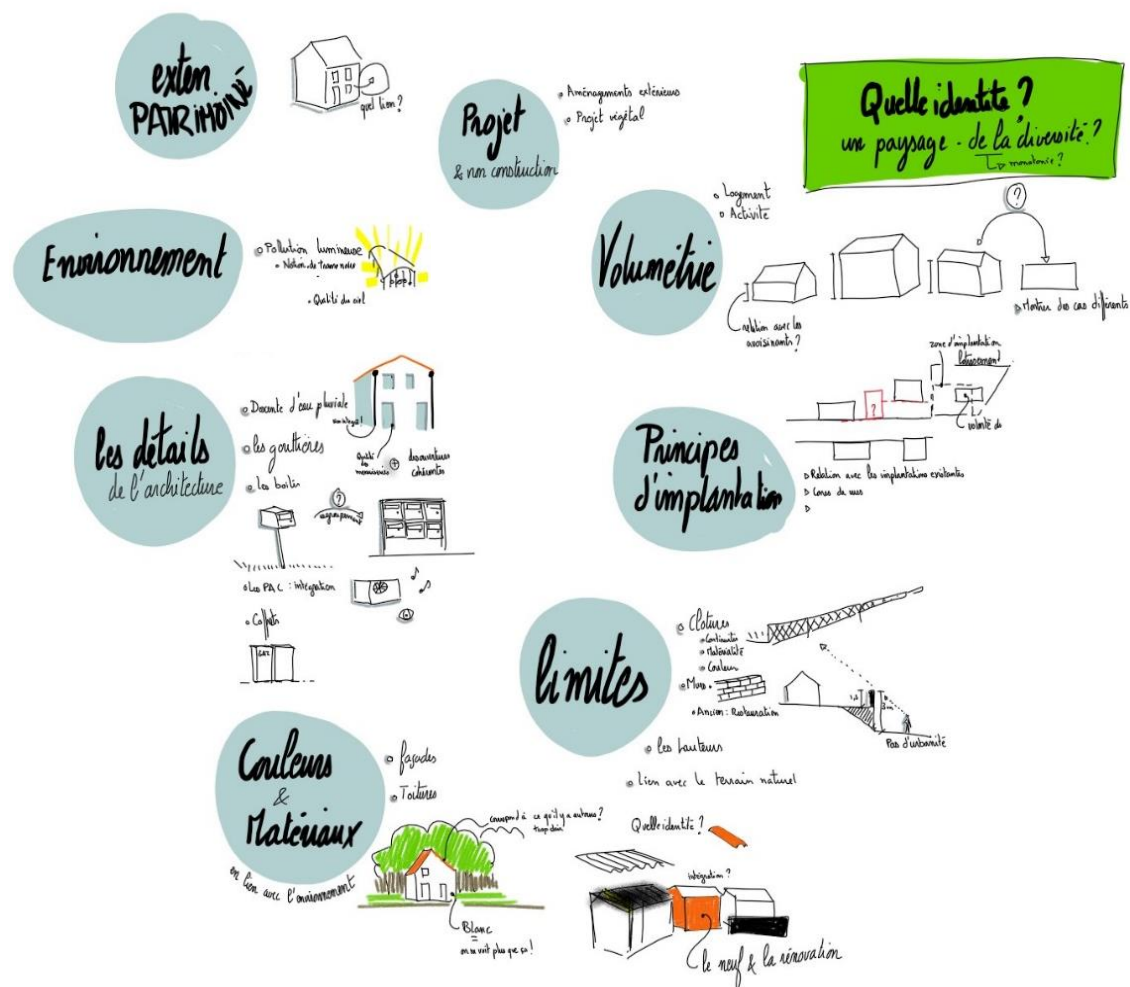 exten
PATRIMOINE
quel lien ?
Projet
& non construction
Aménagements extérieurs
Projet végétal
Quelle identite ?
un paysage - de la diversité ?
monotonie ?
Environnement
Pollution lumineuse
Notion de trame noire
Qualité du ciel
Volumétrie
Logement
Activité
?
relation avec les
avoisinants ?
Montrer des cas différents
les détails
de l'architecture
Descente d'eau pluviale
les gouttières
les boites
Qualité
des menuiseries
+
des ouvertures
cohérentes
?
regroupement
Les PAC : intégration
Coffrets
GAZ
Principes
d'implantation
zone d'implantation
lotissement
?
volonté de
Relation avec les implantations existantes
Cones de vues
limites
Clotures
Continuités
Matérialité
Couleur
Murs
Ancien : Restauration
3m
Pas d'urbanité
les hauteurs
Lien avec le terrain naturel
Couleurs
&
Matériaux
en lien avec l'environnement
façades
Toitures
correspond à ce qu'il y a autour ?
Blanc
on ne voit plus que ça !
Quelle identité ?
intégration ?
le neuf & la rénovation